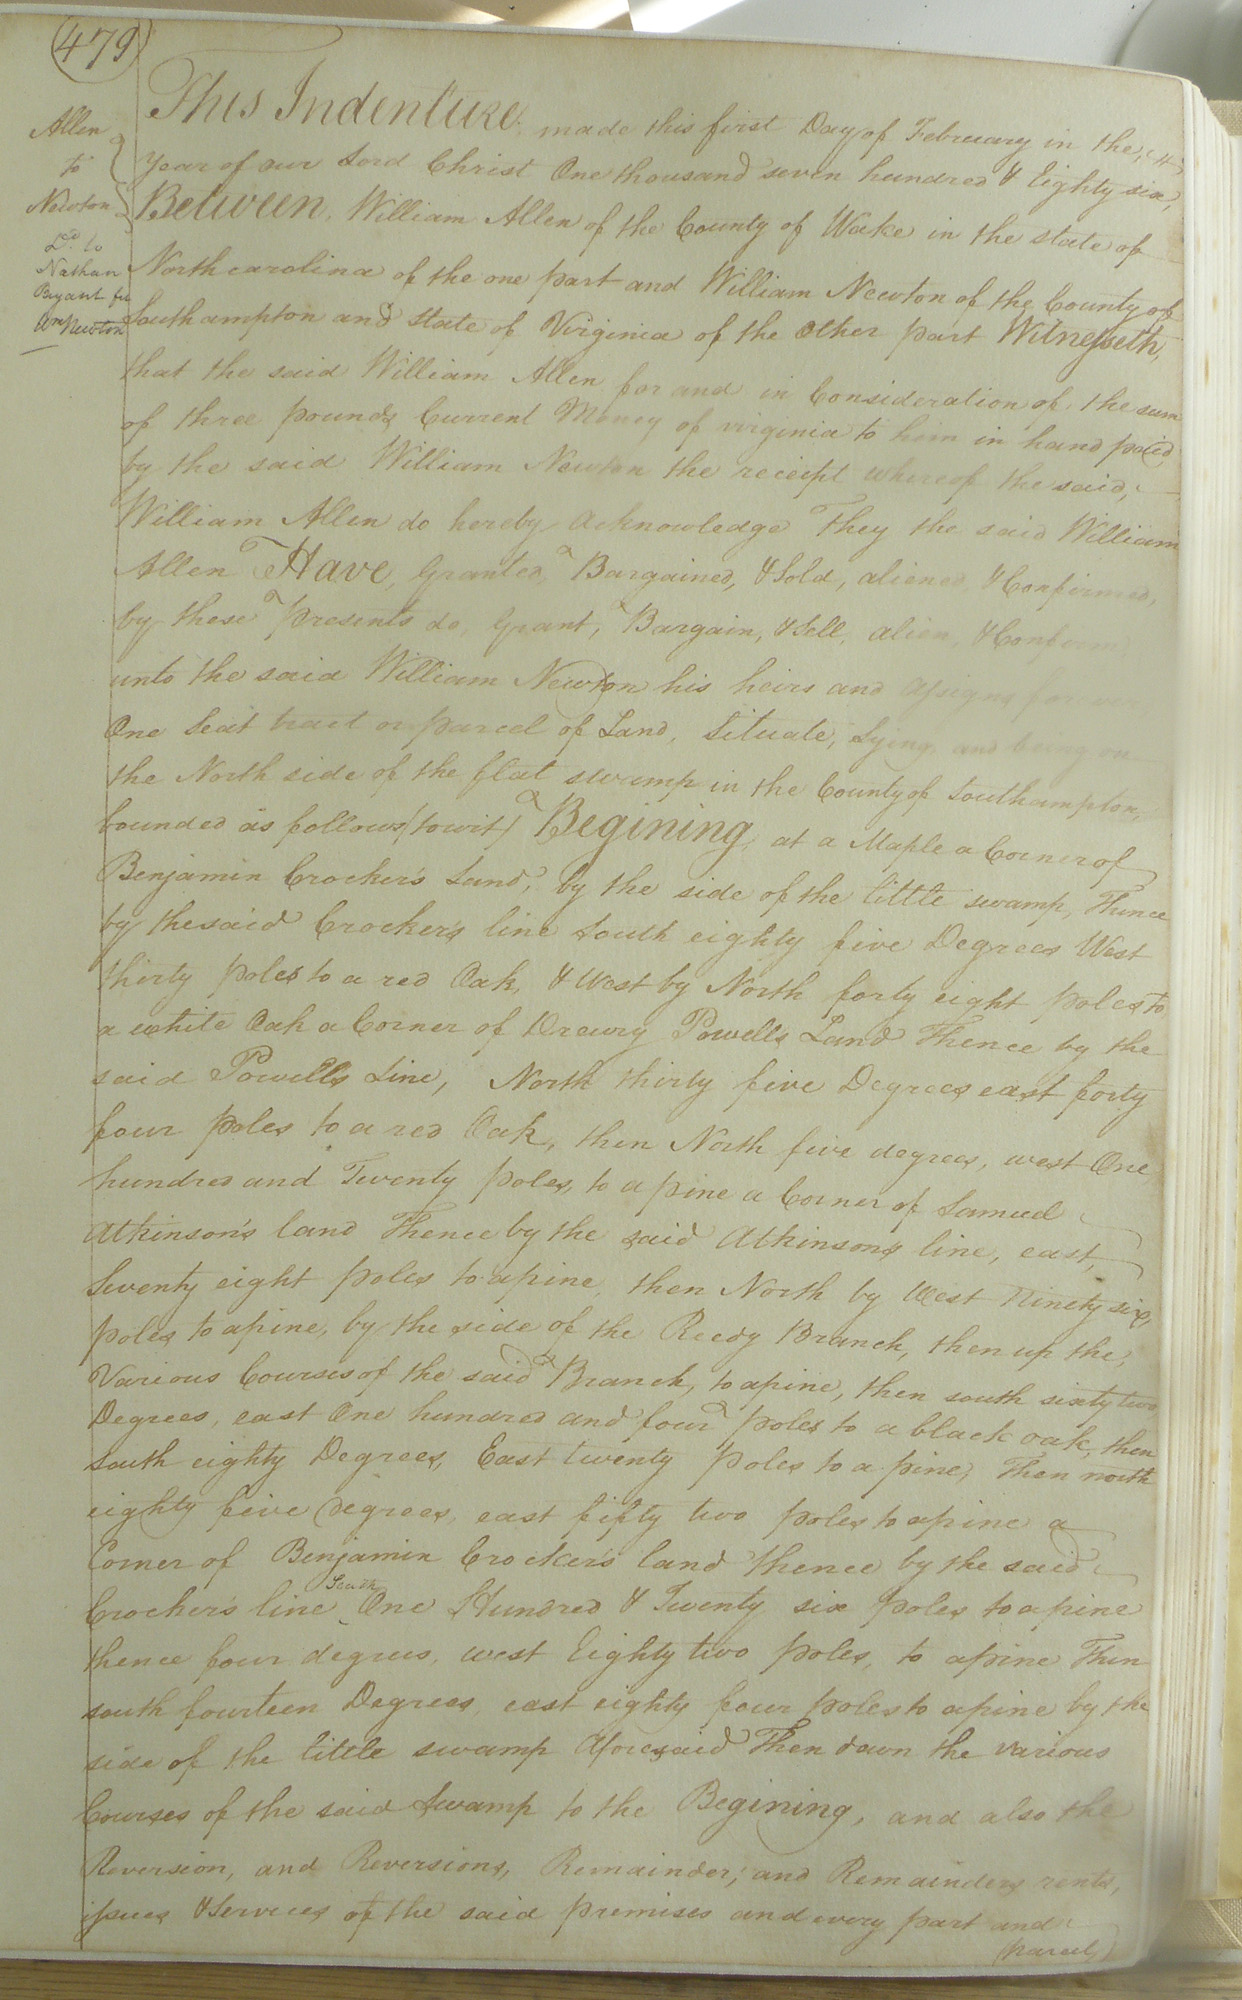 479
Allen
to
Newton
Dd. to
Nathan
Bryant for
Wm Newton
This Indenture, made this first Day of February in the,
Year of our Lord Christ One thousand seven hundred & Eighty six,
Between, William Allen of the County of Wake in the state of
North carolina of the one part and William Newton of the County of
Southampton and state of Virginia of the Other part Witnesseth,
that the said William Allen for and in Consideration of, the sum
of three pounds Current Money of virginia to him in hand paid
by the said William Newton the receipt whereof the said,
William Allen do hereby Acknowledge They the said William
Allen Have, Granted, Bargained, & Sold, aliened, & Confirmed,
by these presents do, Grant, Bargain, & Sell, alien, & Confirm
unto the said William Newton his heirs and Assigns for ever
One Seat tract or parcel of Land, Situate, Lying, and being on
the North side of the flat swamp in the County of Southampton,
bounded as follows (towit) Begining, at a Maple a Corner of
Benjamin Crocker's Land, by the side of the little swamp, Thence
by the said Crocker's line South eighty five Degrees West
thirty poles to a red Oak, & West by North forty eight poles to
a white Oak a Corner of Drewry Powells Land Thence by the
said Powells Line, North thirty five Degrees east forty
four poles to a red Oak, then North five degrees, west One
hundred and Twenty poles, to a pine a Corner of Samuel
Atkinson's land Thence by the said Atkinsons line, east,
Seventy eight poles to a pine, then North by West Ninety six,
poles to a pine, by the side of the Reedy Branch, then up the,
Various Courses of the said Branch, to a pine, then south sixty two
Degrees, east One hundred and four poles to a black oak, then
south eighty Degrees, East twenty poles to a pine, Then north
eighty five Degrees, east fifty two poles to a pine a
Corner of Benjamin Crocker's land thence by the said
Crocker's line South One Hundred & Twenty six poles to a pine
thence four degrees, west Eighty two poles, to a pine Then
south fourteen Degrees, east eighty four poles to a pine by the
side of the little swamp Aforesaid Then down the various
Courses of the said Swamp to the Begining, and also the
Reversion, and Reversions, Remainder, and Remainders rents,
issues & Services of the said premises and every part and
(parcel)